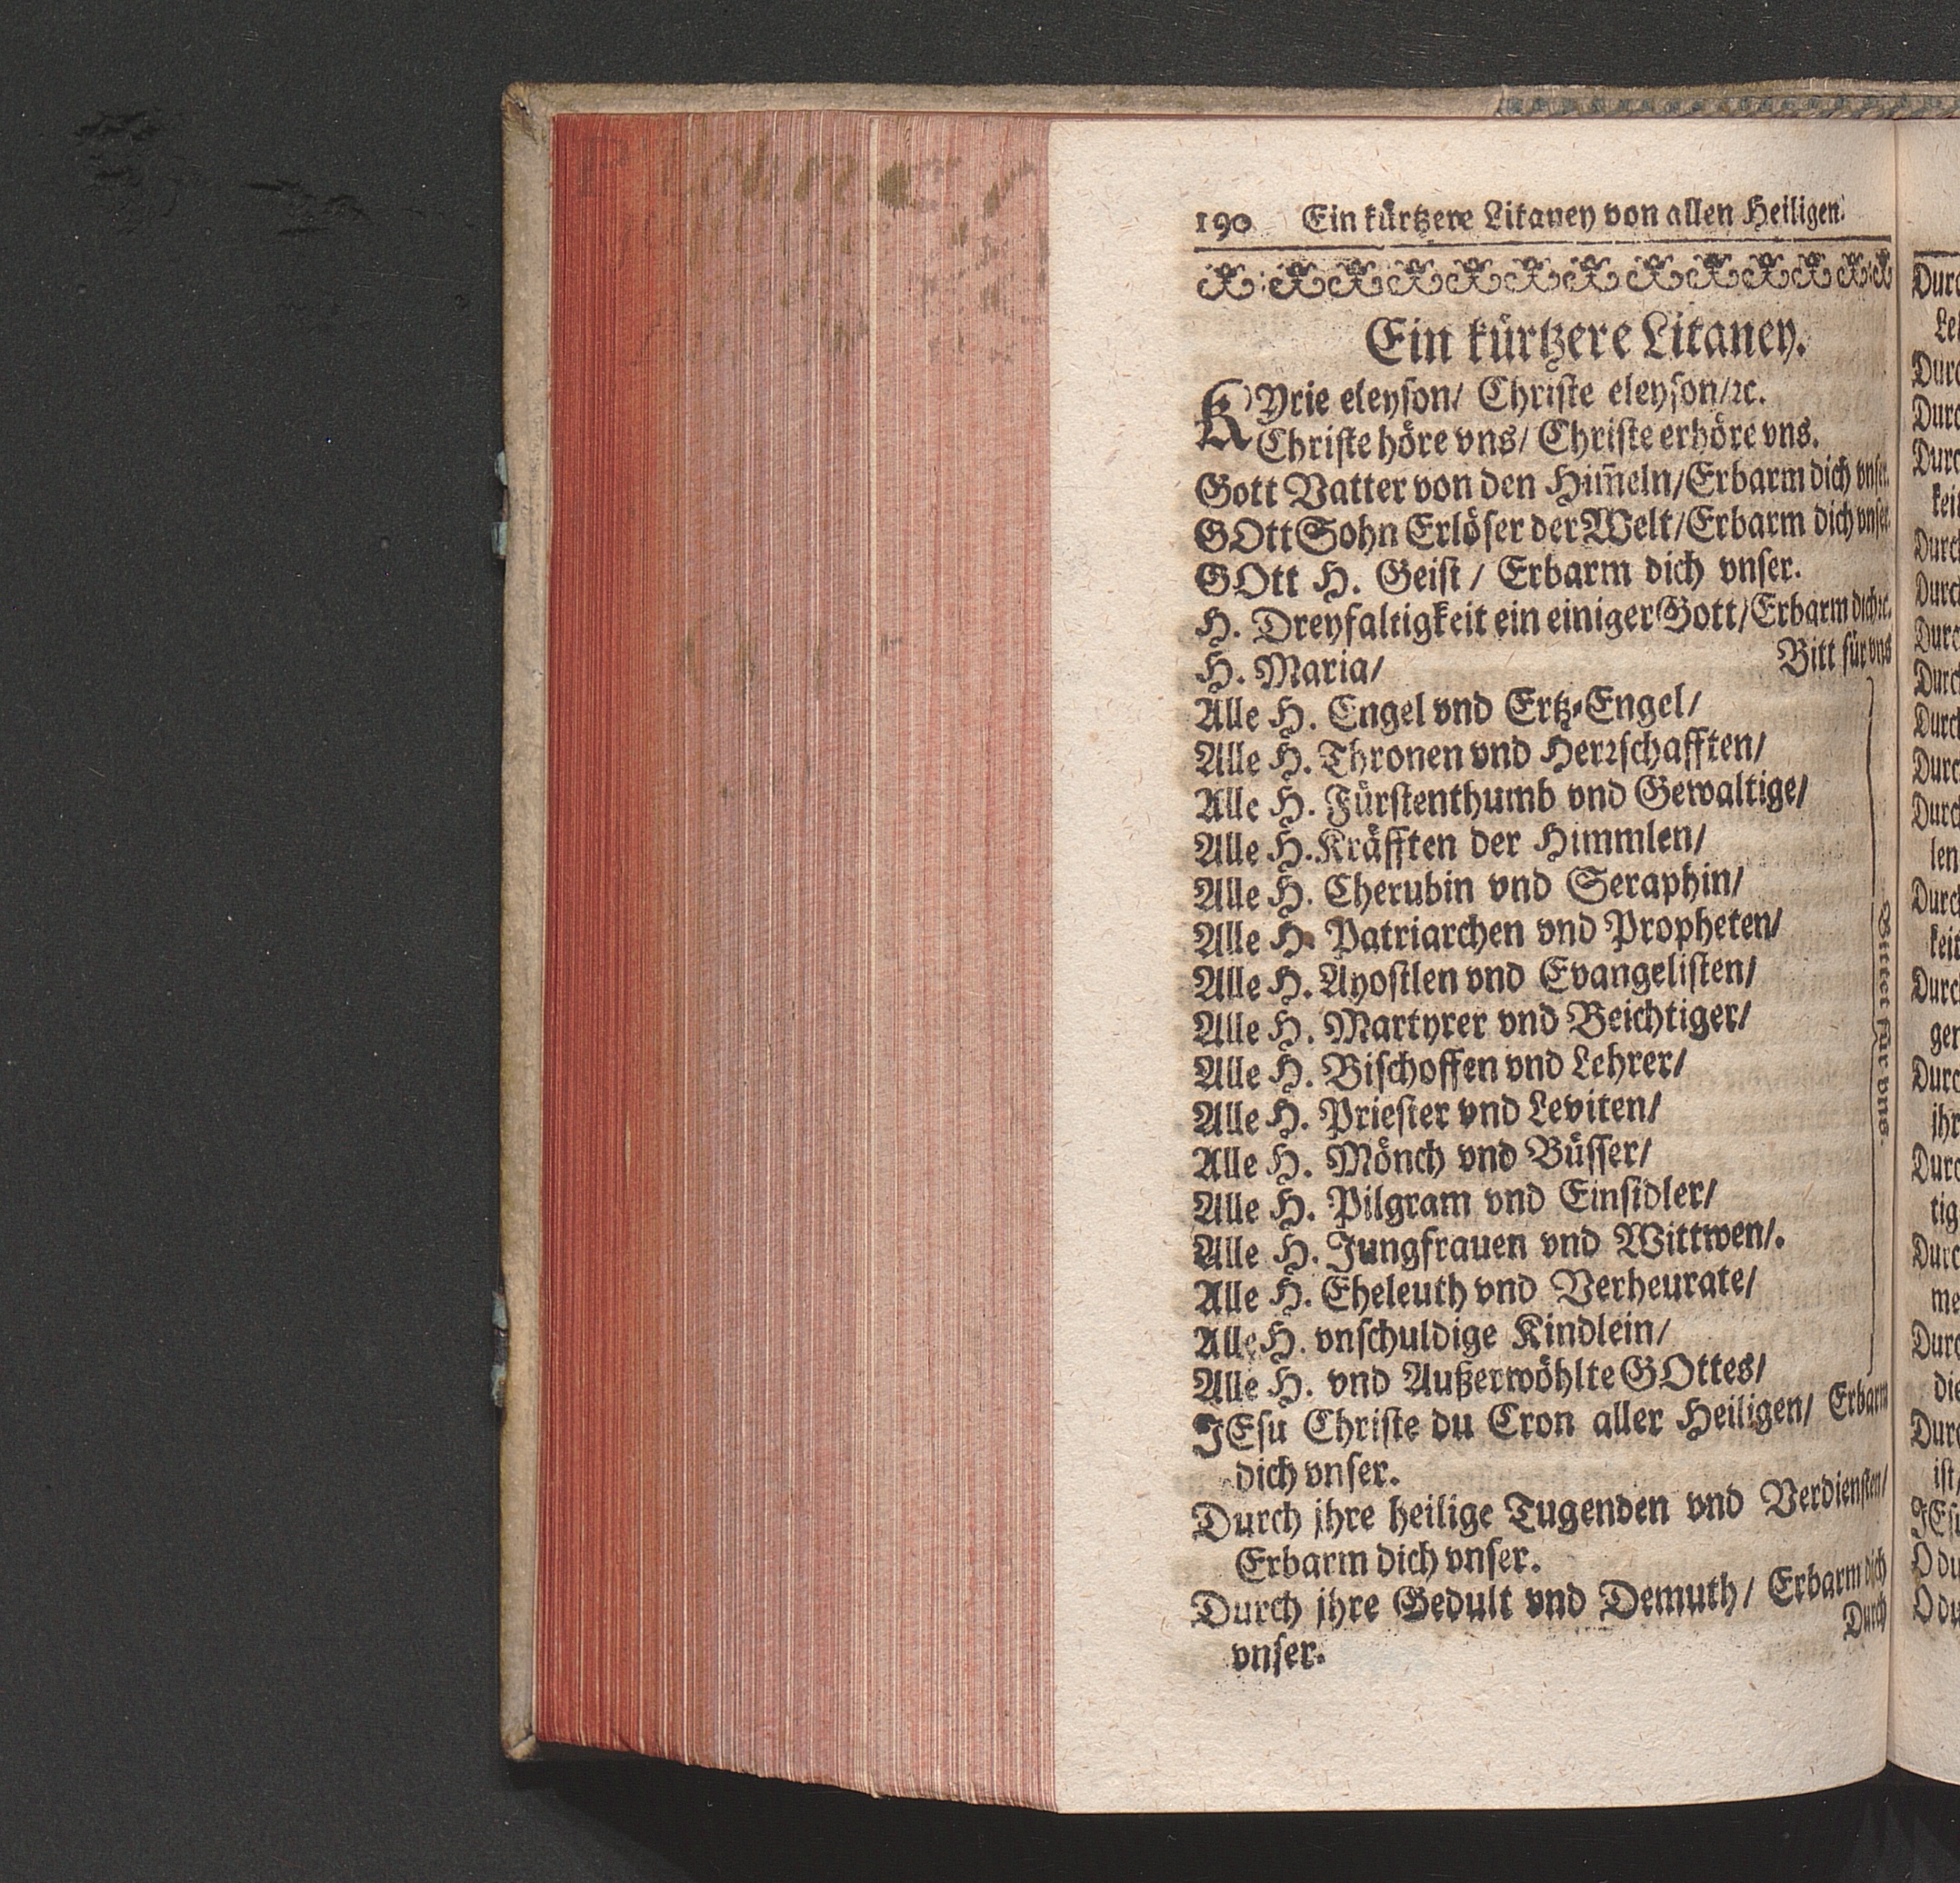 190 Ein kürtzere Litaney von allen Heiligen.
Ein kürtzere Litaney.
KYrie eleyson/ Christe eleyson/ꝛc.
Christe höre vns/ Christe erhöre vns.
Gott Vatter von den Him̃eln/Erbarm dich vnser.
GOtt Sohn Erlöser der Welt/Erbarm dich vnser.
GOtt H. Geist / Erbarm dich vnser.
H. Dreyfaltigkeit ein einiger Gott/Erbarm dich ꝛc.
H. Maria/ Bitt für vns
Alle H. Engel vnd Ertz-Engel/
Alle H. Thronen vnd Herrschafften/
Alle H. Fürstenthumb vnd Gewaltige/
Alle H. Kräfften der Himmlen/
Alle H. Cherubin vnd Seraphin/
Alle H. Patriarchen vnd Propheten/
Alle H. Apostlen vnd Evangelisten/
Alle H. Martyrer vnd Beichtiger/
Alle H. Bischoffen vnd Lehrer/
Alle H. Priester vnd Leviten/
Alle H. Mönch vnd Büsser/
Alle H. Pilgram vnd Einsidler/
Alle H. Jungfrauen vnd Wittwen/.
Alle H. Eheleuth vnd Verheurate/
Alle H. vnschuldige Kindlein/
Alle H. vnd Außerwöhlte GOttes/
Bittet für vns.
JEsu Christe du Cron aller Heiligen/ Erbarm
dich vnser.
Durch jhre heilige Tugenden vnd Verdiensten/
Erbarm dich vnser.
Durch jhre Gedult vnd Demuth/ Erbarm dich
vnser.
Durch